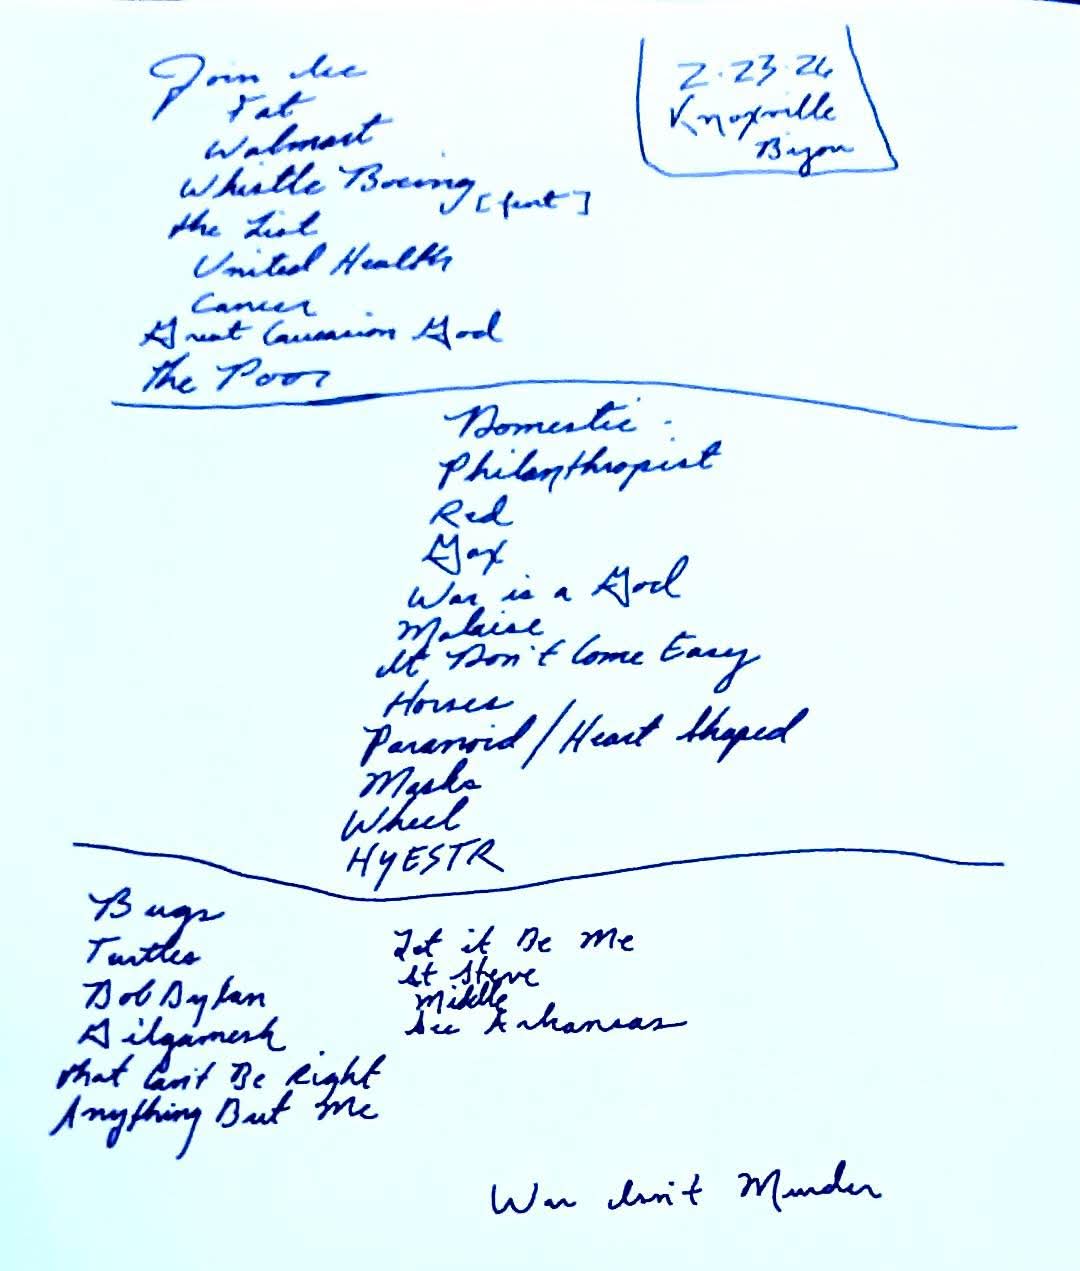 Join Ice
Fat
Walmart
Whistle Boeing
the List
United Health
Cancer
Great Caucasian God
the Poor
2.23.26
Knoxville
Bijou
Domestic
Philanthropist
Red
Gax
War is a God
Malaise
It Don't Come Easy
Horses
Paranoid / Heart Shaped
Masks
Wheel
HYESTR
Bugs
Turtles
Bob Dylan
Gilgamesh
that Can't Be Right
Anything But Me
Let it Be Me
St Steve
Middle
See Arkansas
War Isn't Murder